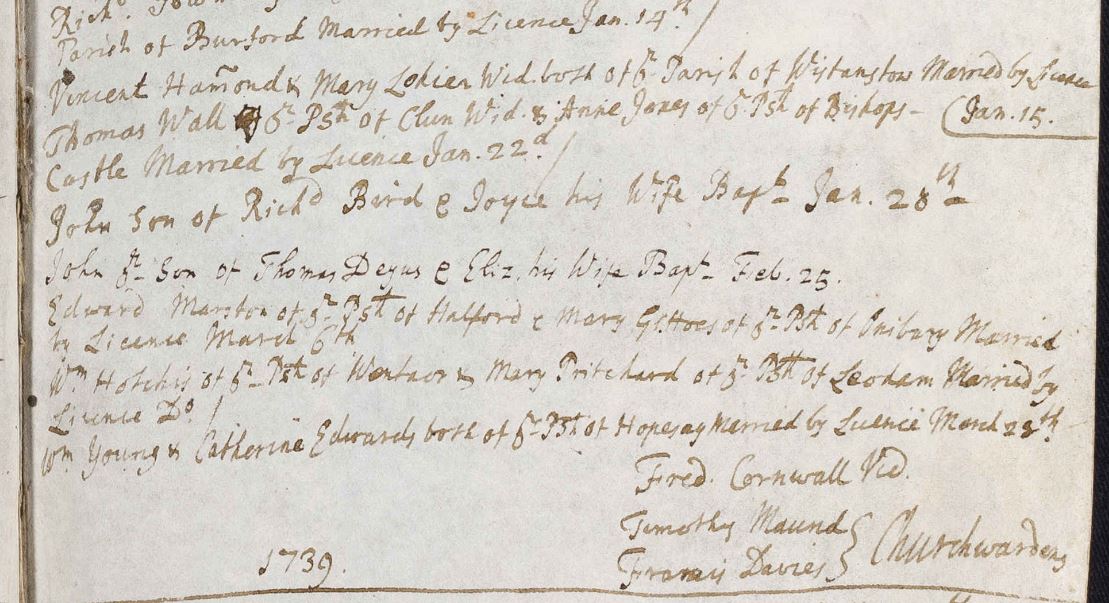 Rich.d
Parish of Burford Married by Licence Jan. 14th
Vincent Ham̃ond & Mary Wid. both of ye Parish of Wistanstow Married by Licence
Thomas Wall of ye Psh of Clun Wid. & Anne Jones of ye Psh of Bishops- (Jan. 15.
Castle Married by Licence Jan. 22d
John Son of Richd Bird & Joyce his Wife Bapt Jan. 28th
John ye Son of Thomas & Eliz. his Wife Bapt Feb. 25.
Edward Marston of ye Psh of Halford & Mary of ye Psh of Onibury Married
by Licence March 6th
Wm Hotchis of ye Psh of Wentnor & Mary Pritchard of ye Psh of Married by
Licence Do
Wm Young & Catherine Edwards both of ye Psh of Hopesay Married by Licence March 28th
Fred. Cornwall Vic.
Timothy Maund
Francis Davies } Churchwardens
1739.